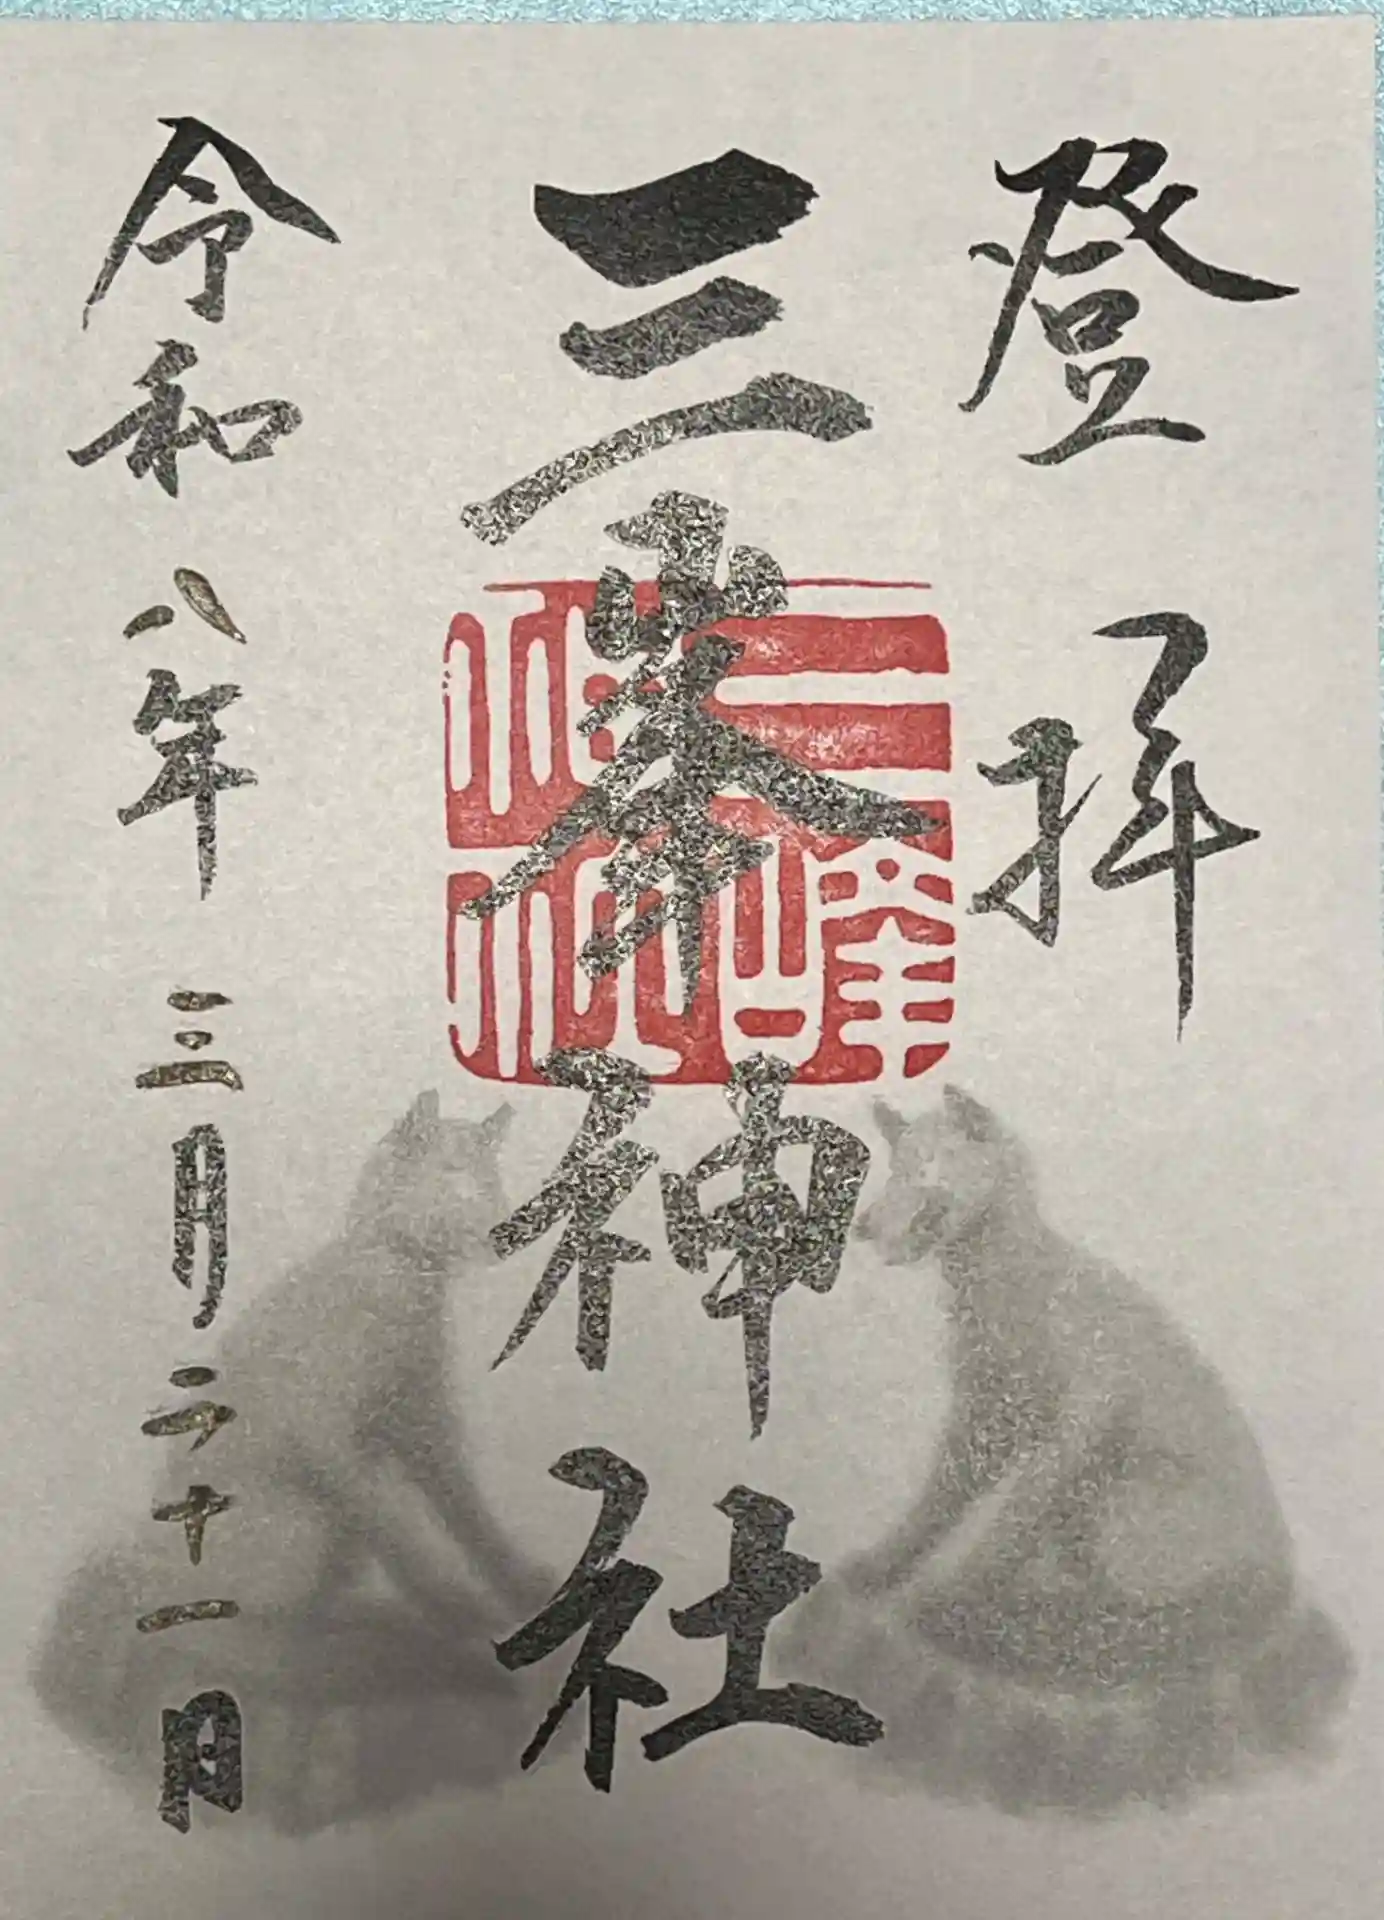 登拝
三峯神社
令和八年三月二十一日